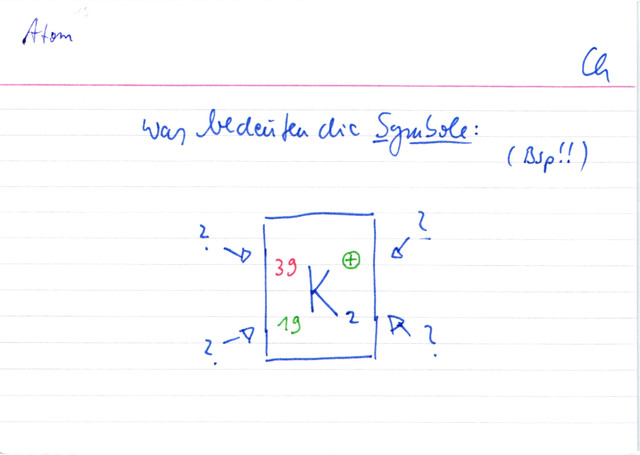 Atom
Ch
Was bedeuten die Symbole:
(Bsp!!)
? ?
39 K ⊕
19 2
? ?